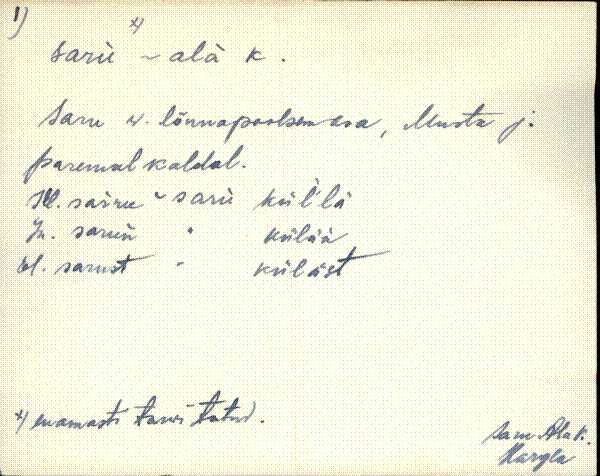 1)
sarū *) ~ alā k.
Saru v. lõunapoolsem osa, Musta j.
paremal kaldal.
Ill. sarru ~ sarū külʹlä
In. sarun " külän
El. sarust " küläst
*) enamasti tarvitatud.
Saru Ala k.
Hargla